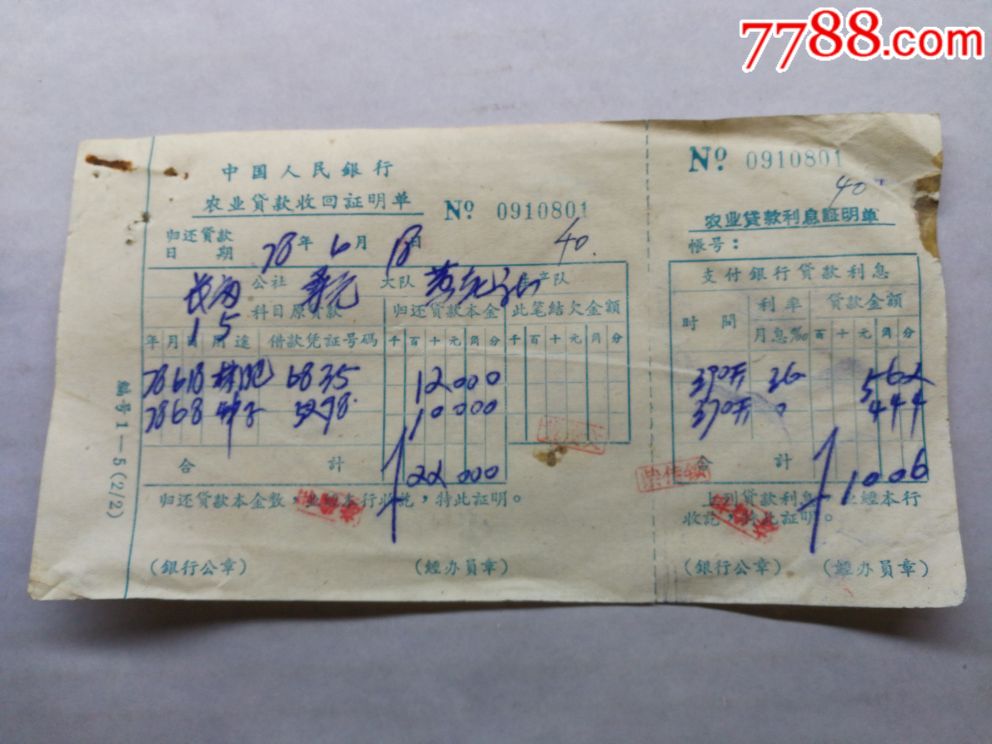 7788.com
中国人民銀行
农业貸款收回証明单
Nº 0910801
归还貸款日期 78年6月18日
40.
公社 大队 生产队
科目原貸款 归还貸款本金 此笔结欠金額
15
年月日用途 借款凭証号碼 千百十元角分 千百十元角分
78 6 18 6835 12000
78 6 8 种子 10000
合計 22000
归还貸款本金数，行收訖，特此証明。
(銀行公章) (經办員章)
編号1—5(2/2)
Nº 0910801
40
农业貸款利息証明单
帳号：
支付銀行貸款利息
时間 利率 貸款金額
月息‰ 百十元角分
370天 36 562
370天 444
合計 1006
上列貸款利息 經本行
收訖，特此証明。
(銀行公章) (經办員章)